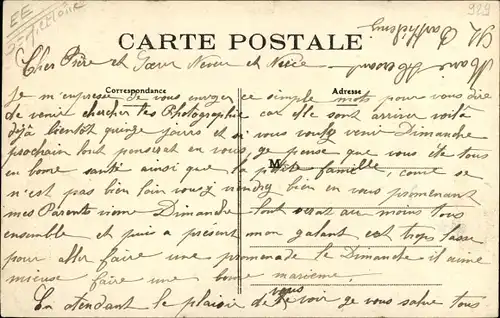 EE
929
CARTE POSTALE
Cher Frère et Sœur Neveu et Nièce
Correspondance Adresse
Je m'empresse de vous envoyer ce simple mots pour vous dire
de venir chercher tes Photographie car elle sont arriver voilà
déjà bientôt quinze jours et si vous voulez venir Dimanche
prochain tout penserat en vous, ge pense que vous ite tous
en bone santé ainsi que la petite famille, come se
M
n'est pas bien loin vous y viendrez bien en vous promenant
mes Parents vione Dimanche tout serat au moins tous
ensemble et puis a présent mon galant est trops lasse
pour aller faire une promenade le Dimanche il aime
mieuse faire une bone
En atendant le plaisir de vous voir ge vous salue tous